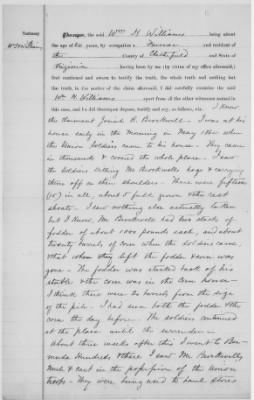 Testimony
Thereupon, the said Wm H. Williams being about
the age of years, by occupation a Farmer and resident of
the County of Chesterfield and State of
Virginia having been by me (by virtue of my office aforesaid)
first cautioned and sworn to testify the truth, the whole truth and nothing but
the truth, in the matter of the claim aforesaid, I did carefully examine the said
Wm H. Williams apart from all the other witnesses named in
this case, and he did thereupon depose, testify and say, as follows, viz: I knew
the claimant Josiah B. Brockwell. I was at his
house early in the morning in May 1864 when
the Union Soldiers came to his house. They came
in thousands & covered the whole place. I saw
the Soldiers killing Mr Brockwells hogs & carrying
them off on their shoulders. There were fifteen
(15) in all, about 5 full grown & the rest
shoats. I saw nothing else actually taken
but I know Mr Brockwell had two stacks of
fodder of about 1000 pounds each, and about
twenty barrels of corn when the soldiers came,
that when they left the fodder & corn was
gone. The fodder was stacked back of his
stable & the corn was in the Corn house
I think there were 20 barrels from the size
of the pile. I had seen both the fodder & the
corn the day before. The soldiers continued
at the place until the surrender.
About three weeks after this I went to Ber-
muda Hundreds & there I saw Mr Brockwell's
mule & cart in the possession of the Union
troops. They were being used to haul stores